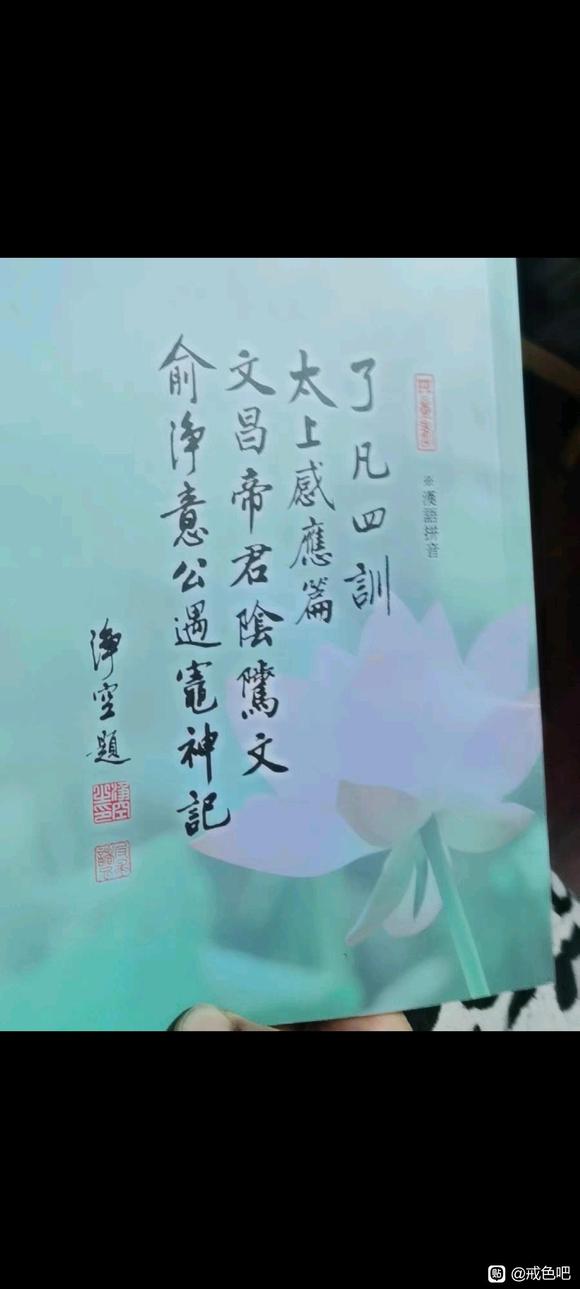 ※漢語拼音
了凡四訓
太上感應篇
文昌帝君陰騭文
俞淨意公遇竈神記
淨空題
貼 @戒色吧